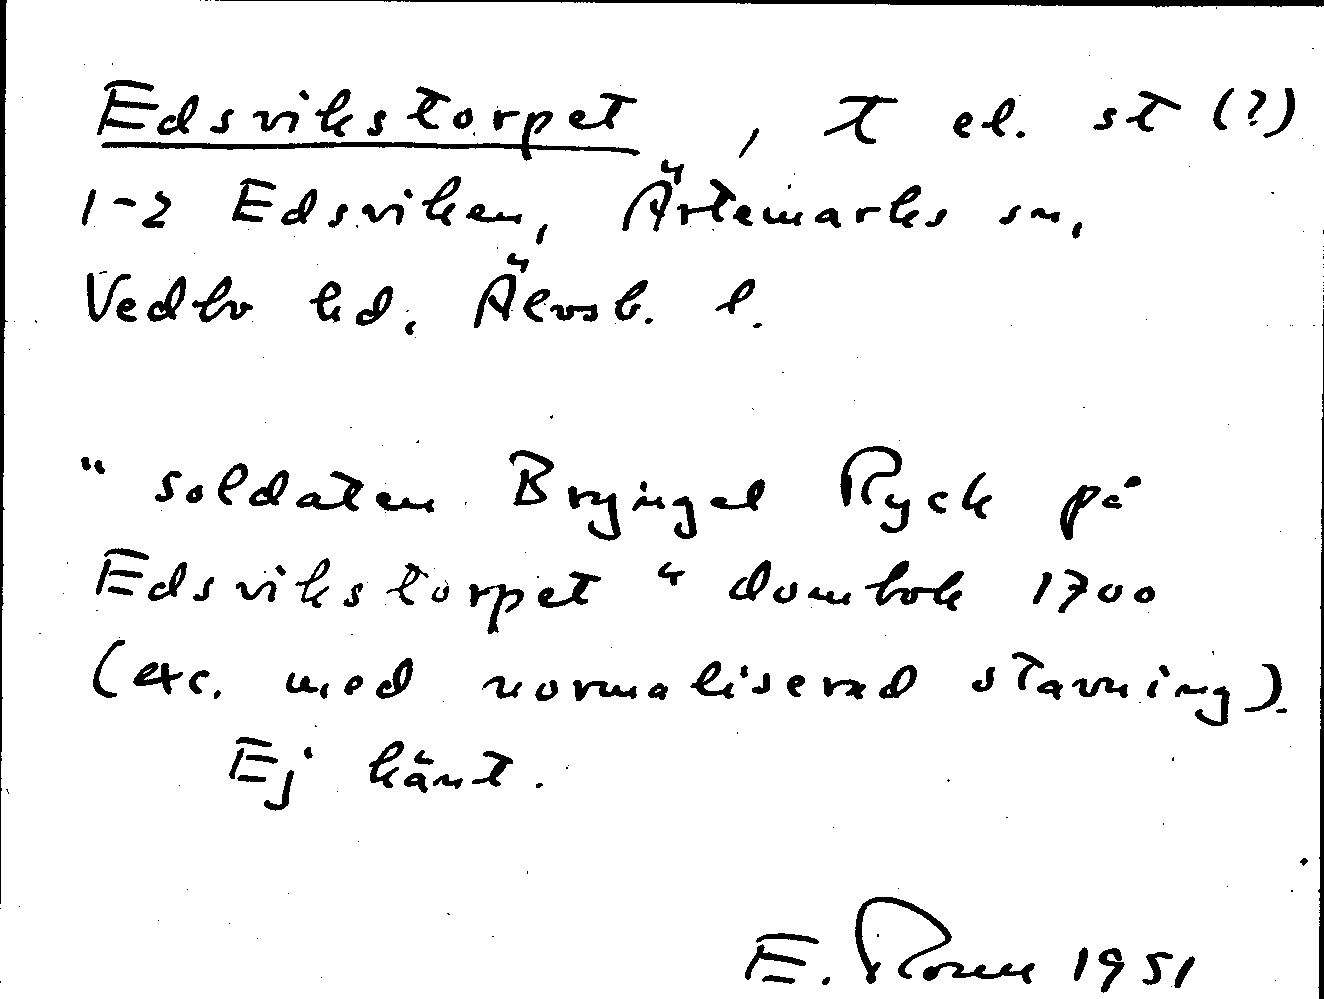 Edsvikstorpet, T el. st (?)
1-2 Edsviken, Ärtemarks sn,
Vedbo hd, Älvsb. l.
"soldaten Bryngel Ryck på
Edsvikstorpet" dombok 1700
(exc. med normaliserad stavning).
Ej känt.
E. 1951